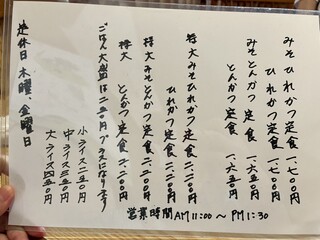 みそひれかつ定食 一、七〇〇円
ひれかつ定食 一、七〇〇円
みそとんかつ定食 一、六五〇円
とんかつ定食 一、六五〇円
特大ひれかつ定食 二、二〇〇円
特大みそとんかつ定食 二、二〇〇円
特大 とんかつ定食 二、二〇〇円
ごはん大盛は二五〇円プラスになります
小ライス二五〇円
中ライス三五〇円
大ライス四五〇円
定休日 木曜、金曜日
営業時間 AM 11:00 ~ PM 1:30